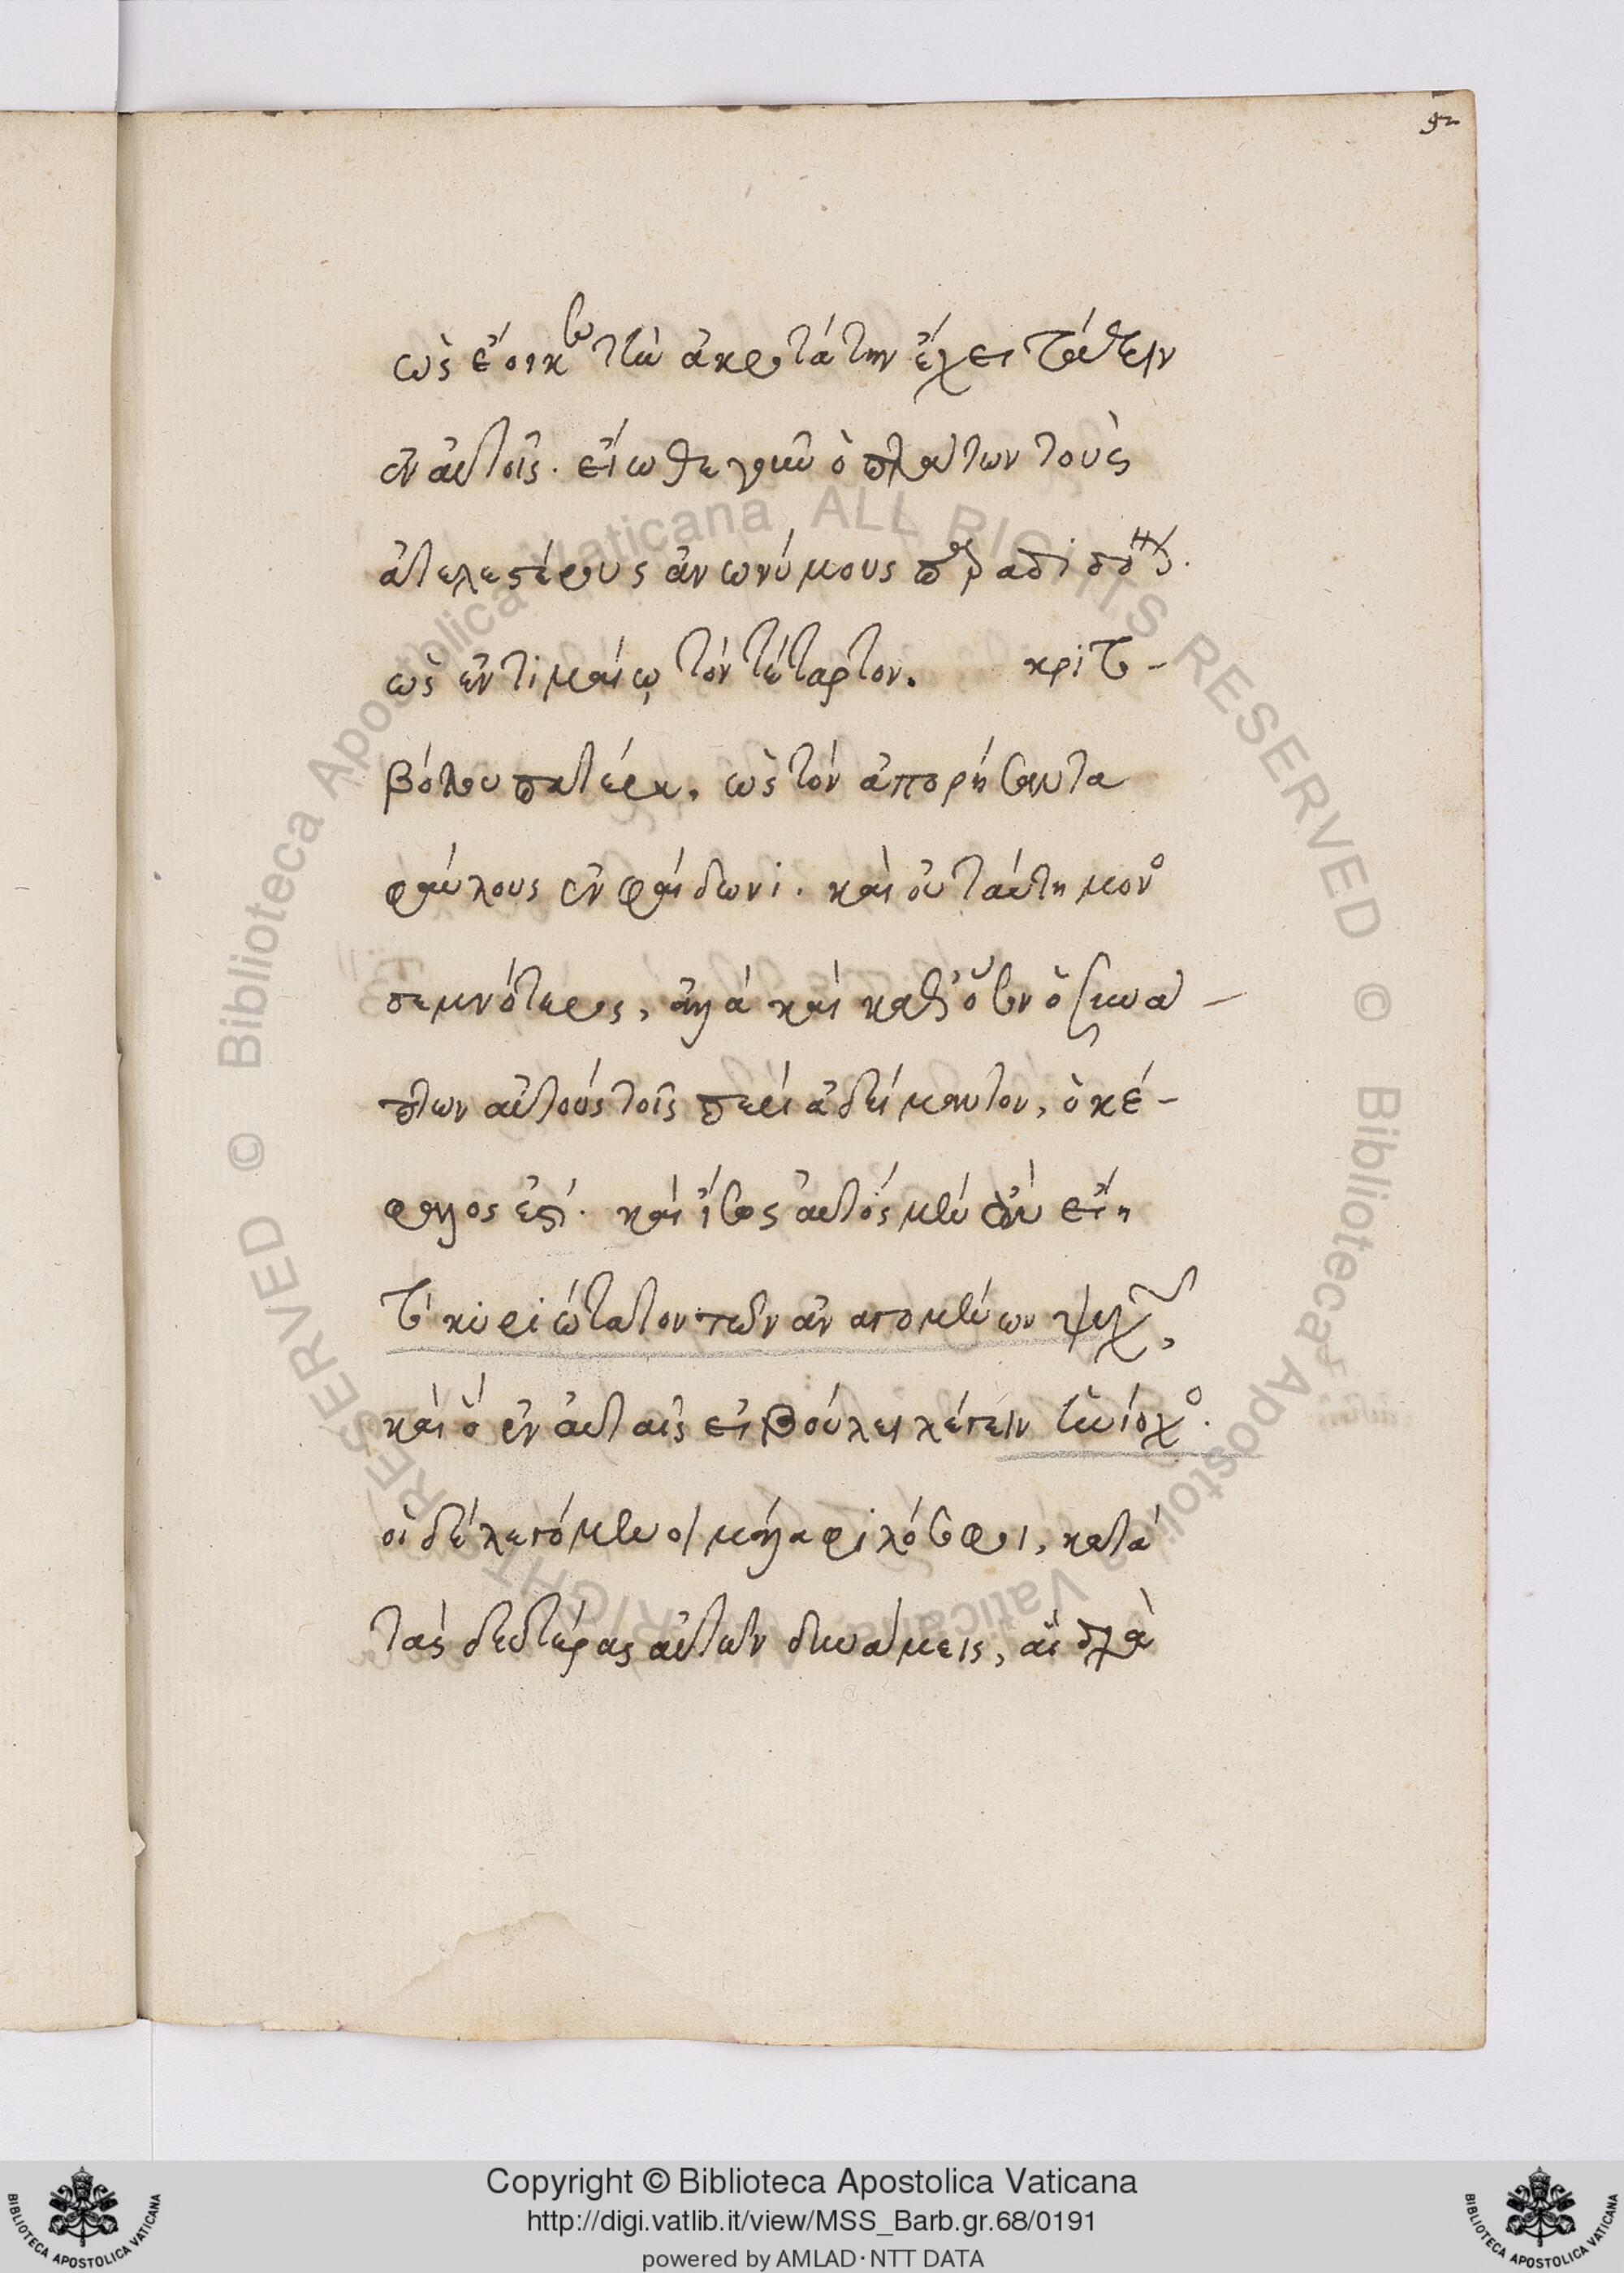 92
ὡς ἔοικεν τὴν ἀκροτάτην ἔχει τάξιν
ἐν αὐτοῖς. εἴωθε γοῦν ὁ πλάτων τοὺς
ἀτελεστέρους ἀνωνύμους παραδιδόναι.
ὡς ἐν τιμαίῳ τὸν τέταρτον. κριτο-
βόλου πατέρα, ὡς τὸν ἀπορήσαντα
φαύλους ἐν φαίδωνι. καὶ οὐ ταύτη μόνον
σεμνότερος, ἀλλὰ καὶ καθ' ὅσον ὁ συνά-
πτων αὐτοὺς τοῖς περὶ ἀδείμαντον, ὁ κέ-
φαλος ἐστί. καὶ ἴσως αὐτὸς μὲν ἂν εἴη
τὸ κυριώτατον τῶν ἀναγομένων ψυχῶν,
καὶ ὁ ἐν αὐταῖς εἰ βούλει λέγειν ἡνίοχος.
οἱ δὲ λεγόμενοι μάλα φιλόσοφοι, κατὰ
τὰς δευτέρας αὐτῶν δυνάμεις, αἳ διὰ
Copyright © Biblioteca Apostolica Vaticana
http://digi.vatlib.it/view/MSS_Barb.gr.68/0191
powered by AMLAD · NTT DATA
BIBLIOTECA APOSTOLICA VATICANA
BIBLIOTECA APOSTOLICA VATICANA
© Biblioteca Apostolica Vaticana ALL RIGHTS RESERVED
© Biblioteca Apostolica Vaticana ALL RIGHTS RESERVED